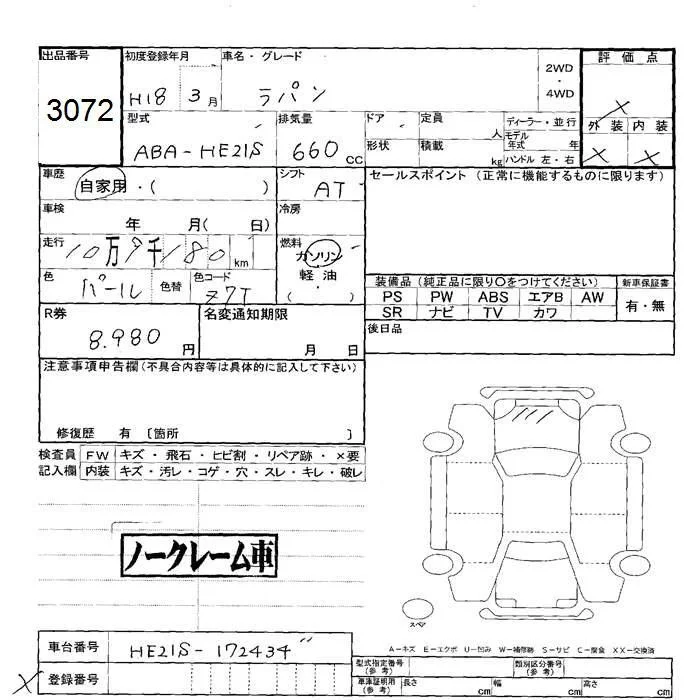 出品番号 初度登録年月 車名・グレード 2WD・4WD 評価点
3072 H18 3月 ラパン
型式 排気量 ドア 定員 人 ディーラー・並行 外装 内装
ABA-HE21S 660 CC 形状 積載 kg モデル年式 年 ハンドル 左・右
X X X
車歴 自家用・( ) シフト AT セールスポイント (正常に機能するものに限ります)
車検 年 月( 日) 冷房
走行 10万9千180km 燃料 ガソリン
軽油・( )
色 パール 色替 色コード Z7T
装備品 (純正品に限り〇をつけてください) 新車保証書
PS PW ABS エアB AW 有・無
SR ナビ TV カワ
R券 8.980円 名変通知期限 月 日 後日品
注意事項申告欄(不具合内容等は具体的に記入して下さい)
修復歴 有 〔箇所 〕
検査員 FW キズ・飛石・ヒビ割・リペア跡・×要
記入欄 内装 キズ・汚レ・コゲ・穴・スレ・キレ・破レ
ノークレーム車
スペア
A-キズ E-エクボ U-凹み W-補修跡 S-サビ C-腐食 XX-交換済
車台番号 HE21S-172434
登録番号 X
型式指定番号(参考) 類別区分番号(参考)
車庫証明用(参考) 長さ cm 幅 cm 高さ cm